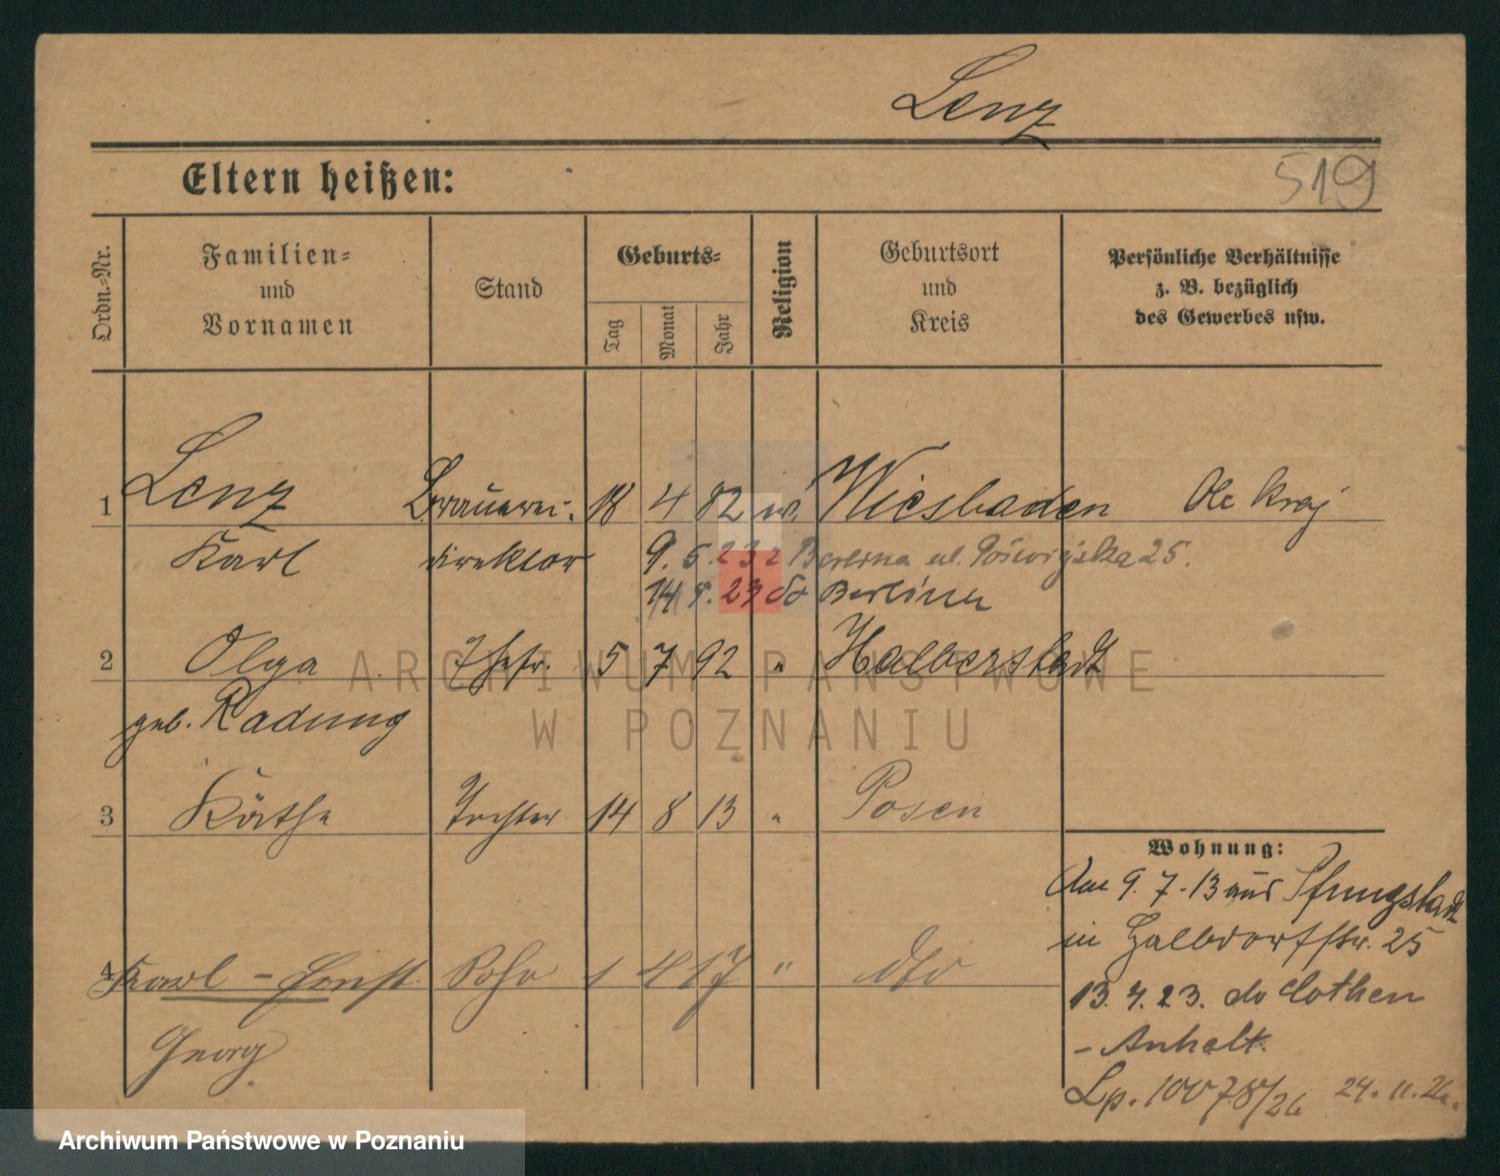 Lenz
519
Eltern heißen:
Ordn.-Nr.
Familien- und Vornamen
Stand
Geburts-
Tag
Monat
Jahr
Religion
Geburtsort und Kreis
Persönliche Verhältnisse z. B. bezüglich des Gewerbes usw.
1 Lenz Brauerei- 18 4 82 ev. Wiesbaden
Karl direktor 9. 5. 23 z Berlina ul.
14 5. 23 do Berlina
2 Olga Ehefr. 5 7 92 " Halberstadt
geb. Radung
3 Käthe Tochter 14 8 13 " Posen
4 Karl-Ernst Sohn 1 4 17 " dto
Georg
Wohnung:
Am 9. 7. 13 aus Pfungstadt
in Halbdorfstr. 25
13. 4. 23. do Cothen
- Anhalt.
Lp. 10078/26 24. 11. 26.
ARCHIWUM PAŃSTWOWE
W POZNANIU
Archiwum Państwowe w Poznaniu